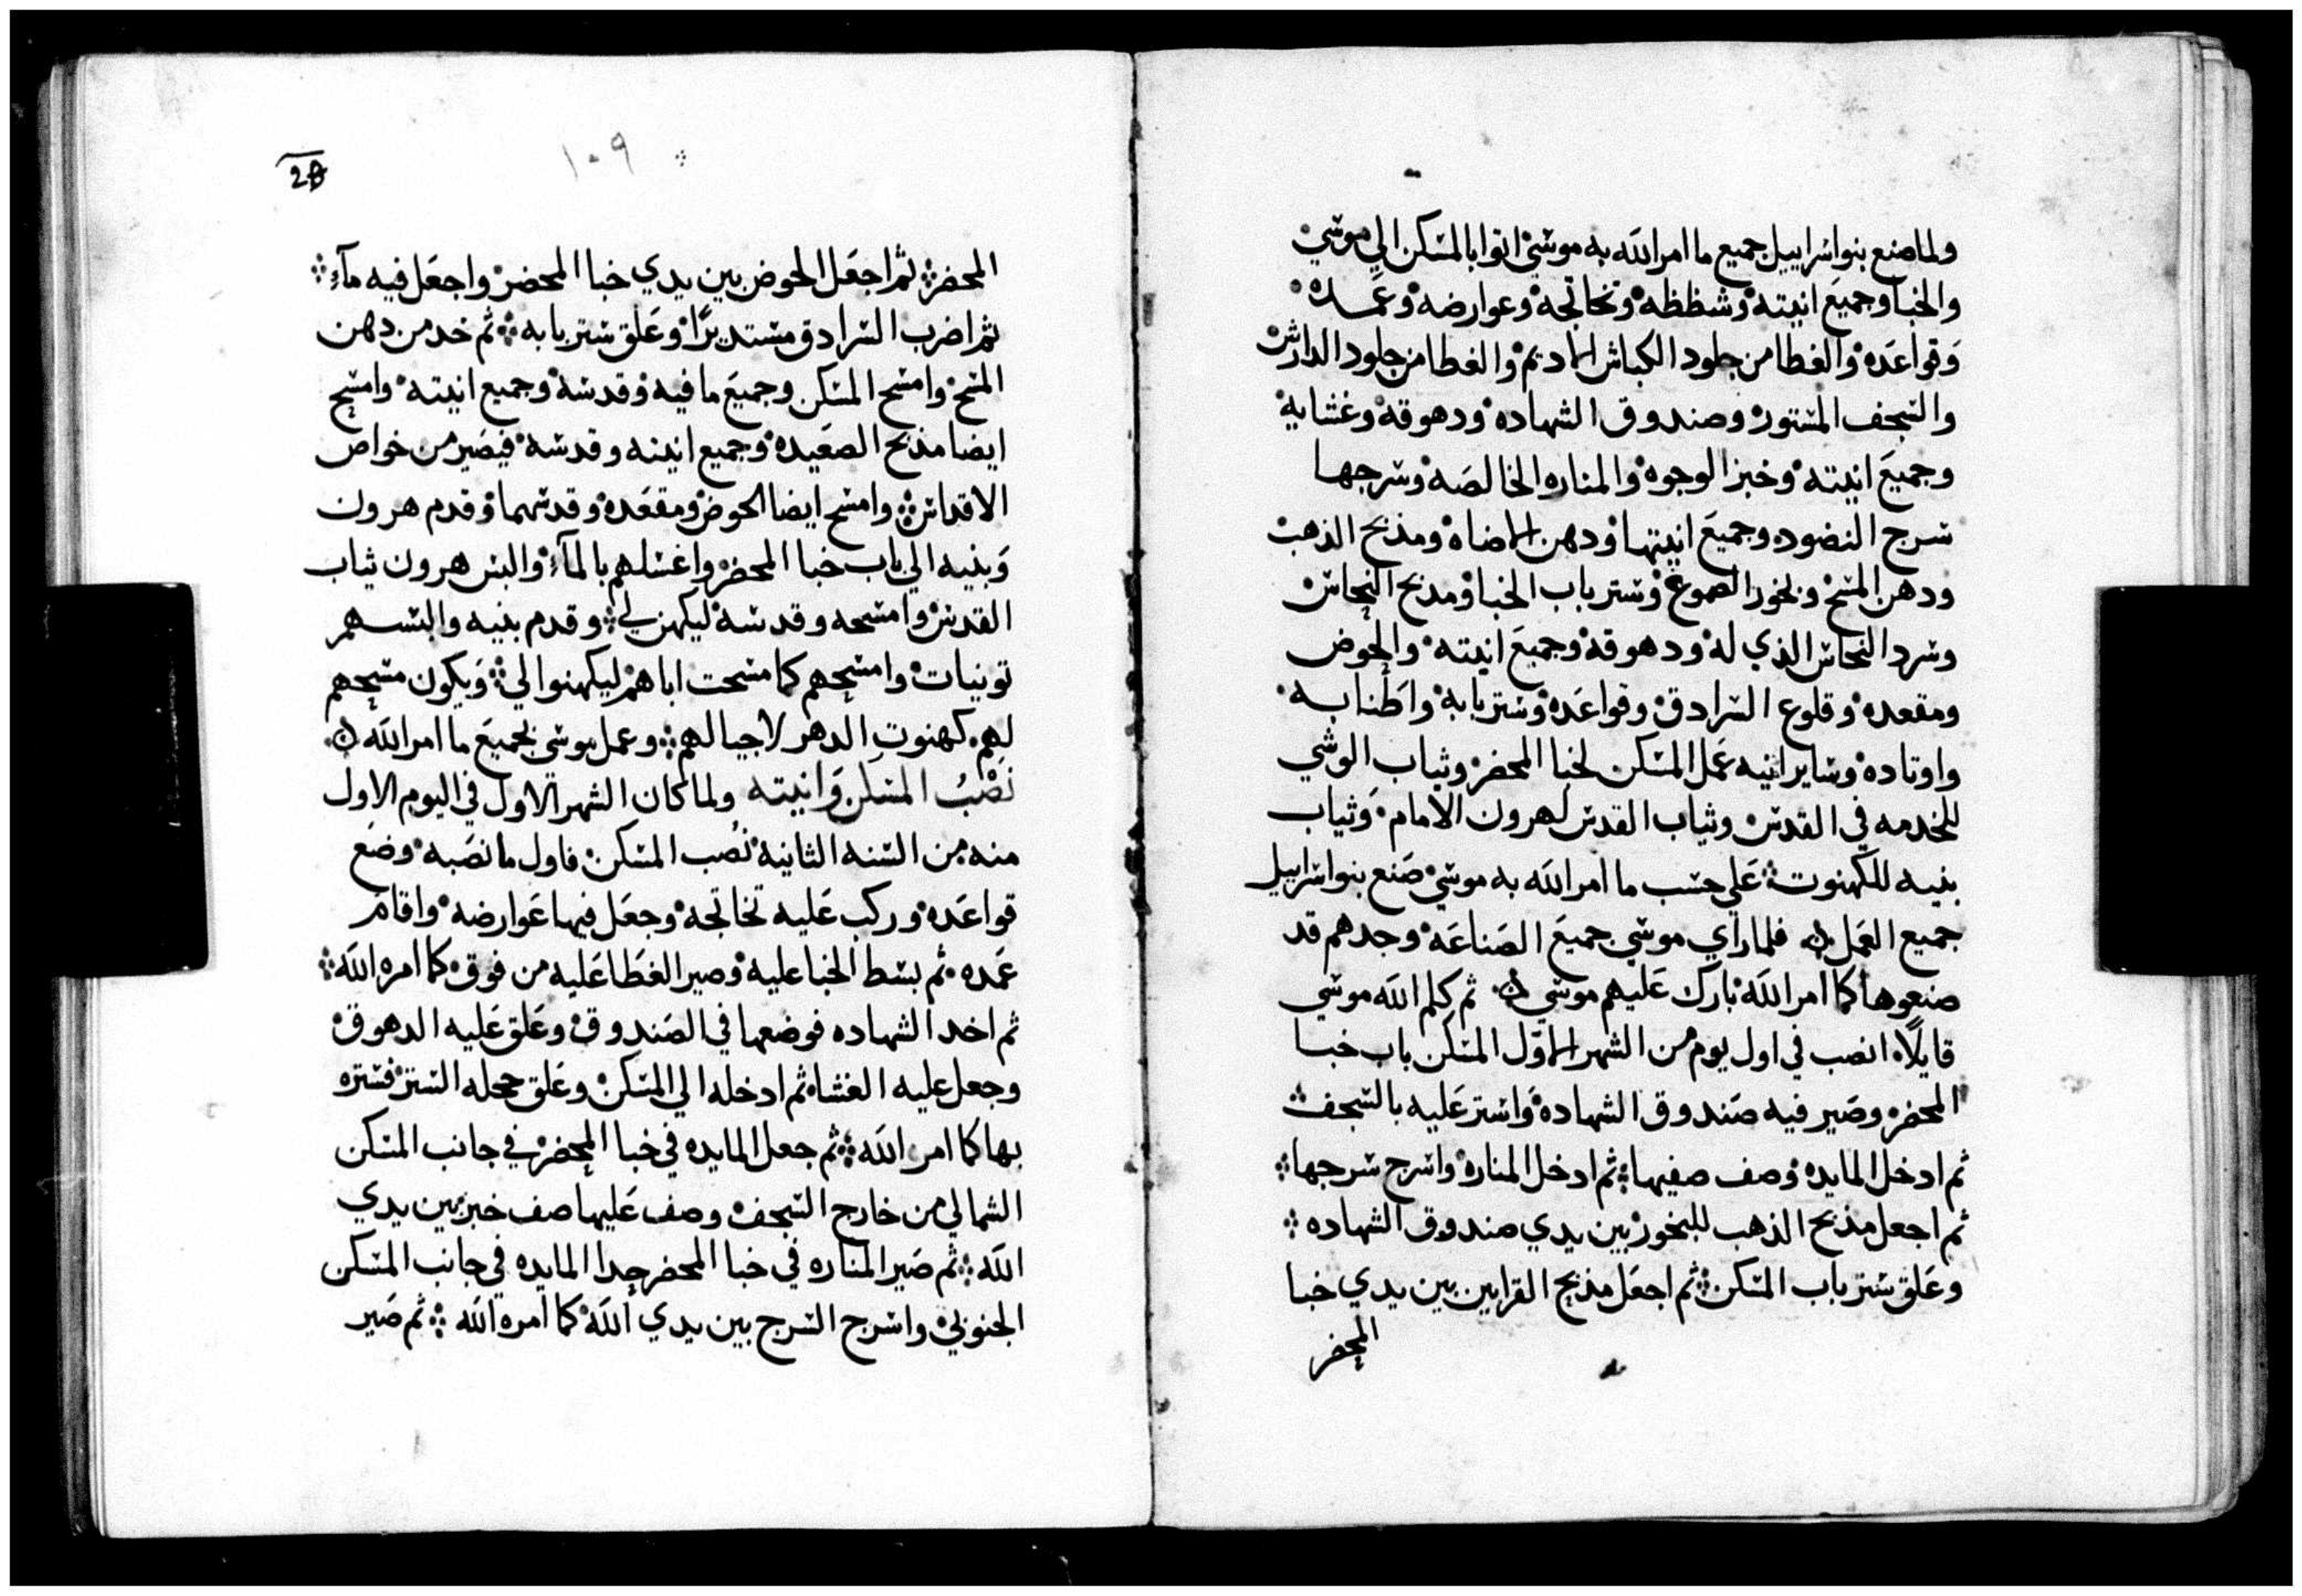 ولما صنع بنو اسراييل جميع ما امر الله به موسي اتوا بالمسكن الي موسي
والخبا وجميع انيته وشظظه وتخاتجه وعوارضه وعمده
وقواعده والغطا من جلود الكباش الاديم والغطا من جلود الدارش
والسجف المستور وصندوق الشهاده ودهوقه وغشايه
وجميع انيته وخبز الوجوه والمناره الخالصه وسرجها
سرج النضود وجميع انيتها ودهن الاضاه ومذبح الذهب
ودهن المسح وبخور الصموغ وستر باب الخبا ومدبح النحاس
وسرد النحاس الذي له ودهوقه وجميع انيته والحوض
ومقعده وقلوع السرادق وقواعده وستر بابه واطنابه
واوتاده وساير انيه عمل المسكن لخبا المحضر وثياب الوشي
للخدمه في القدس وثياب القدس لهرون الامام وثياب
بنيه للكهنوت علي حسب ما امر الله به موسي صنع بنو اسراييل
جميع العمل فلما راي موسي جميع الصناعه وجدهم قد
صنعوها كما امر الله بارك عليهم موسي ثم كلم الله موسي
قايلا انصب في اول يوم من الشهر الاول المسكن باب خبا
المحضر وصير فيه صندوق الشهاده واستر عليه بالسجف
ثم ادخل المايده وصف صفيها ثم ادخل المناره واسرج سرجها
ثم اجعل مذبح الذهب للبخور بين يدي صندوق الشهاده
وعلق ستر باب المسكن ثم اجعل مذبح القرابين بين يدي خبا
المحضر
١٠٩
28
المحضر ثم اجعل الحوض بين يدي خبا المحضر واجعل فيه مآء
ثم اضرب السرادق مستديرًا وعلق ستر بابه ثم خد من دهن
المسح وامسح المسكن وجميع ما فيه وقدسه وجميع انيته وامسح
ايضا مذبح الصعيده وجميع انيته وقدسه فيصير من خواص
الاقداس وامسح ايضا الحوض ومقعده وقدسهما وقدم هرون
وبنيه الي باب خبا المحضر واغسلهم بالمآء والبس هرون ثياب
القدس وامسحه وقدسه ليكهن لي وقدم بنيه والبسهم
تونيات وامسحهم كما مسحت اباهم ليكهنوا لي ويكون مسحهم
لهم كهنوت الدهر لاجيالهم وعمل موسي بجميع ما امر الله
نصب المسكن وانيته ولما كان الشهر الاول في اليوم الاول
منه من السنه الثانيه نصب المسكن فاول ما نصبه وضع
قواعده وركب عليه تخاتجه وجعل فيها عوارضه واقام
عمده ثم بسط الخبا عليه وصير الغطا عليه من فوق كما امره الله
ثم اخد الشهاده فوضعها في الصندوق وعلق عليه الدهوق
وجعل عليه الغشاه ثم ادخله الي المسكن وعلق حجله الستر فستره
بها كما امر الله ثم جعل المايده في خبا المحضر في جانب المسكن
الشمالي من خارج السجف وصف عليها صف خبز بين يدي
الله ثم صير المناره في خبا المحضر حدا المايده في جانب المسكن
الجنوبي واسرج السرج بين يدي الله كما امره الله ثم صير